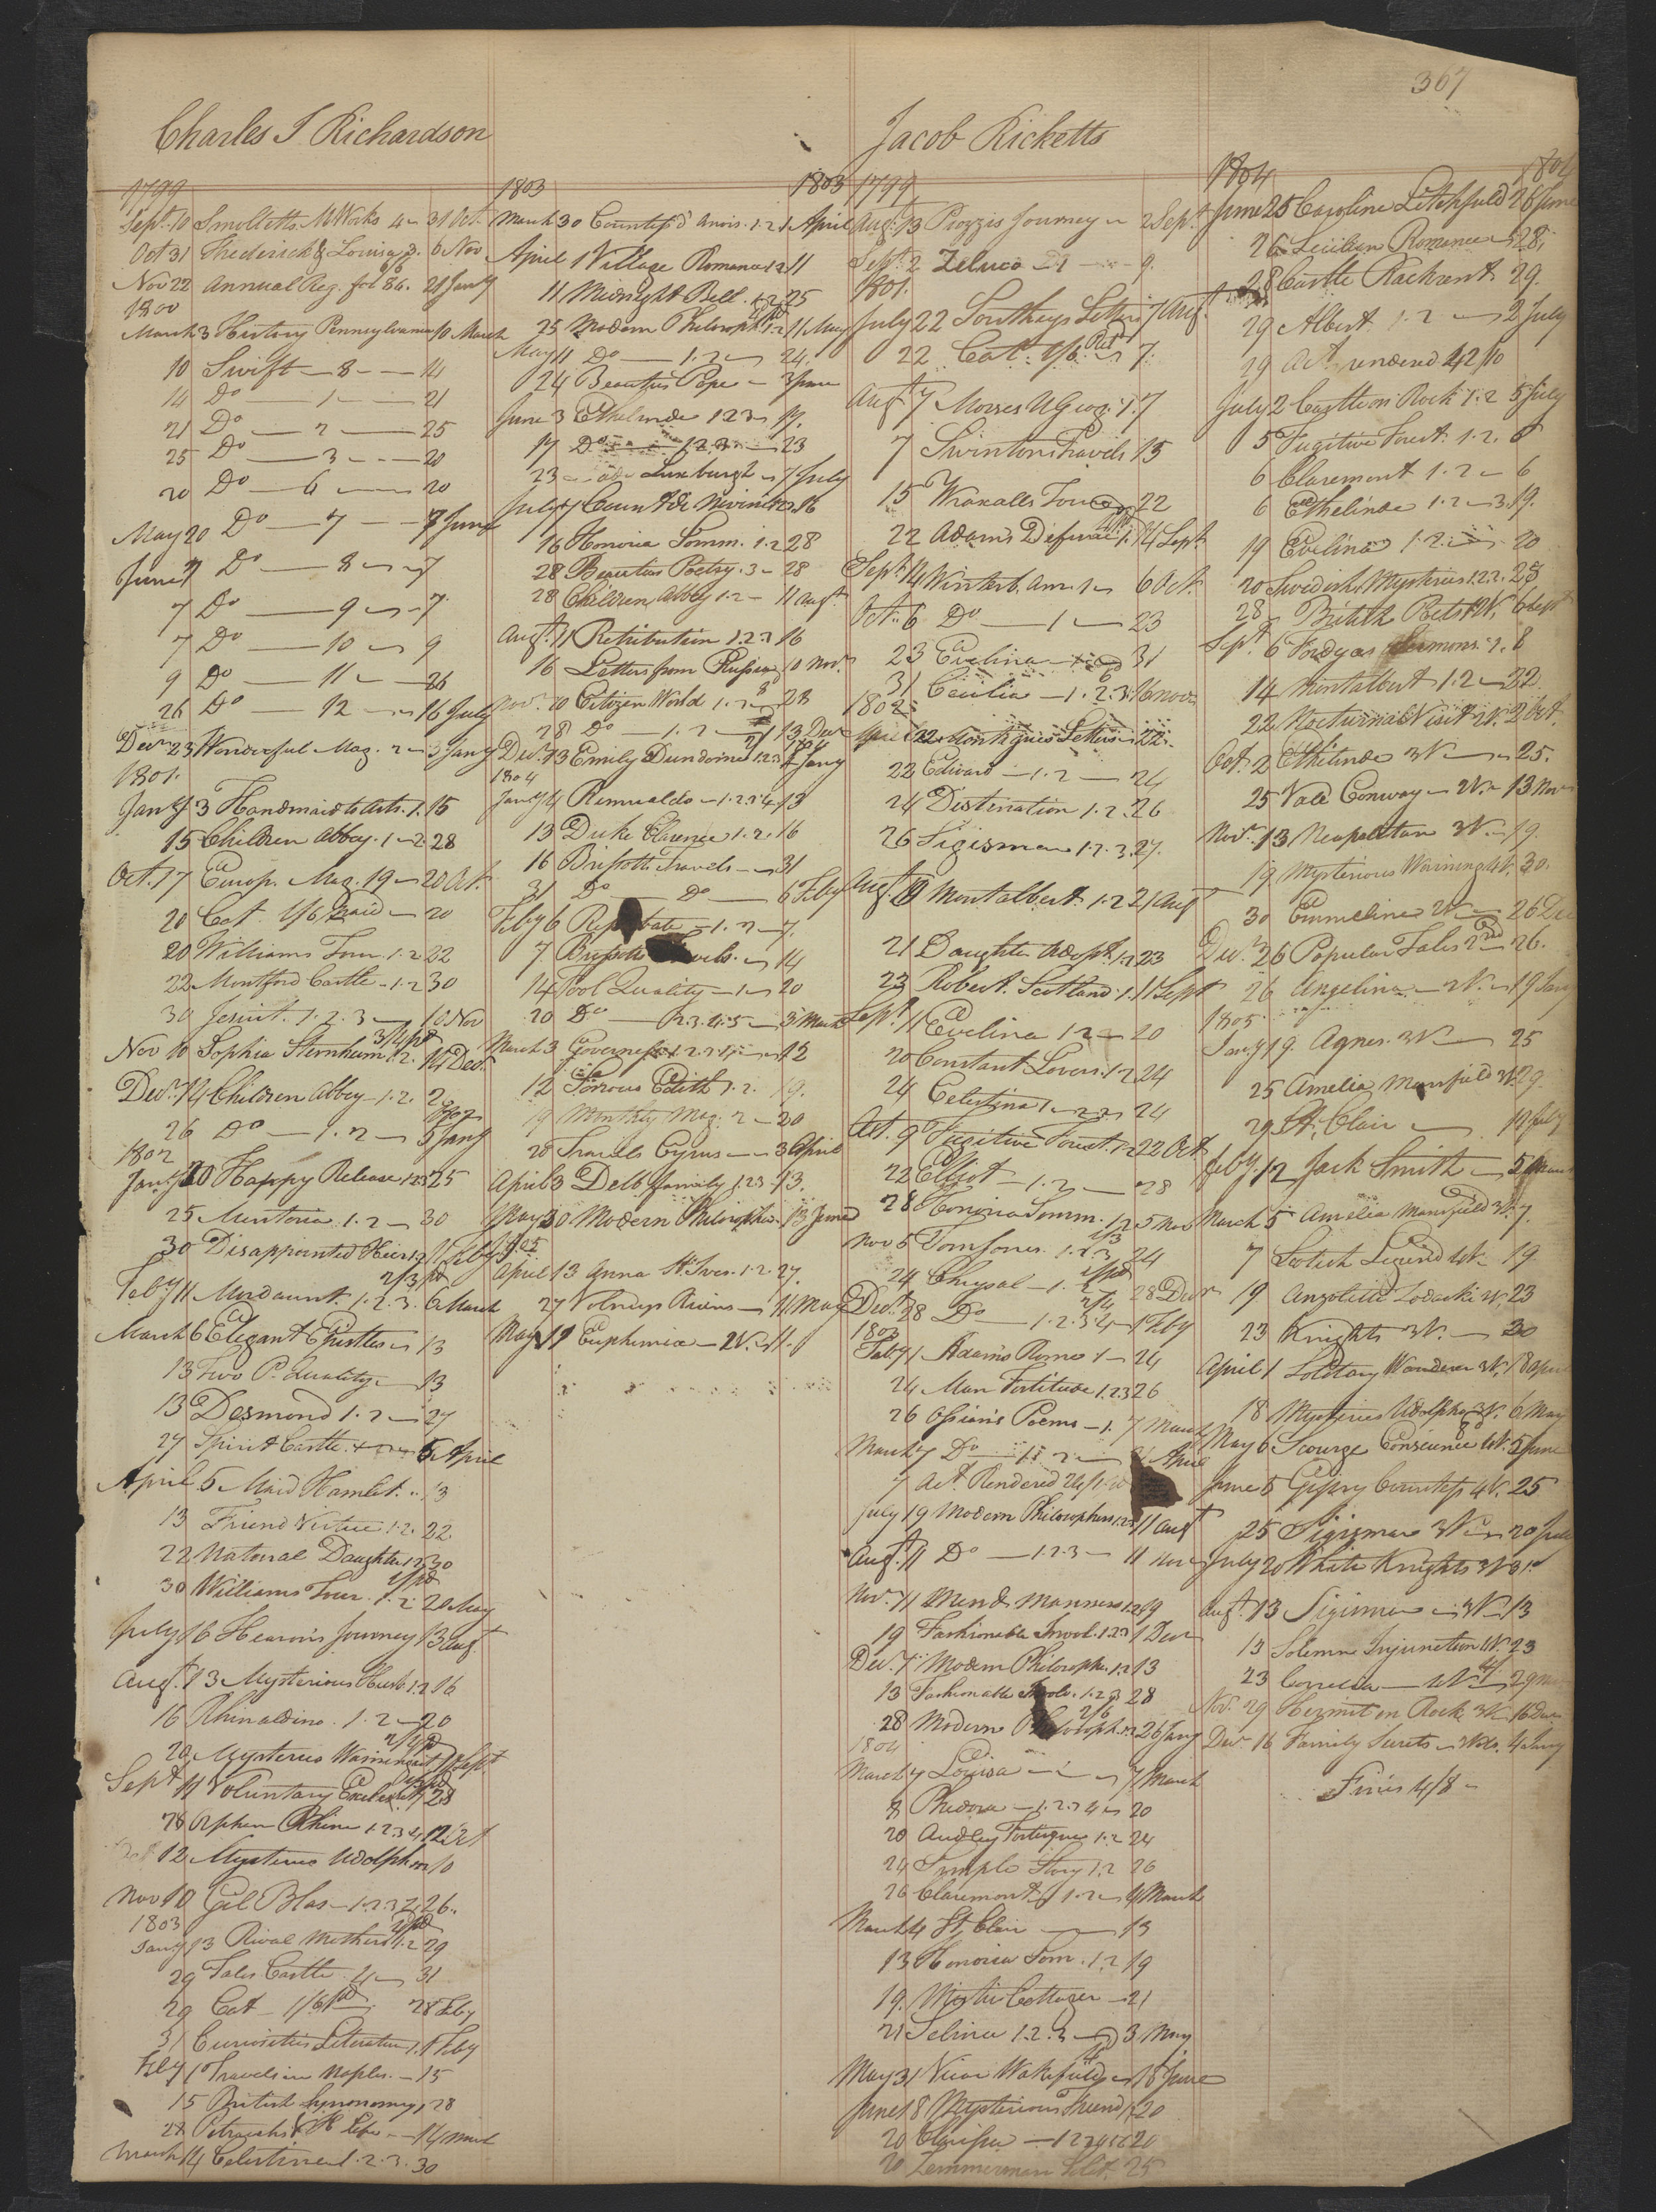 367
Charles S Richardson
1799
Sept. 10 Smolletts M Works 4 31 Oct.
Oct 31 Frederick & Louisa 6 Nov
Nov 22 Annual Reg. for 86. 21 Jany
1800
March 3 History Pennsylvania 10 March
10 Swift — 8 — 14
14 Do — 1 — 21
21 Do — 2 — 25
25 Do — 3 — 20
20 Do — 6 — 20
May 20 Do — 7 — 7 June
June 7 Do — 8 — 7
7 Do — 9 — 7
7 Do — 10 — 9
9 Do — 11 — 26
26 Do — 12 — 16 July
Decr 23 Wonderful Mag. 2 — 3 Jany
1801.
Jany 3 Handmaid to Arts. 1. 15
15 Children Abbey. 1–2. 28
Oct. 17 Europ. Mag. 19 — 20 Oct.
20 Cat. 1/6 paid — 20
20 Williams Tour. 1.2 22
22 Montford Castle — 1.2 30
30 Jesuit. 1.2.3 — 10 Nov
Nov 10 Sophia Sternheim 1.2. 14 Dec.
Decr. 14 Children Abbey — 1.2. 2
26 Do — 1.2 — 5 Jany
1802
Jany 20 Happy Release 1.2.3 25
25 Mentoria. 1.2 — 30
30 Disappointed Heir 1.2 11 Feby
Feby 11 Mordaunt. 1.2.3. 6 March
March 6 Elegant Epistles — 13
13 Two P. Quality — 13
13 Desmond 1.2 — 27
27 Spirit Castle. 5 April
April 5 Maid Hamlet. 13
13 Friend Virtue 1.2. 22
22 Natural Daughter 1.2 30
30 Williams Tour. 1.2. 20 May
July 16 Hearn's Journey 13 Augt
Augt. 13 Mysterious Husb 1.2 16
16 Rhinaldino. 1.2 — 20
20 Mysterious Warning 11 Sept
Sept 11 Voluntary Exile 28
28 Orphen Rhine 1.2.3.4 12 Oct
12 Mysteries Udolpho 10
Nov 10 Gil Blas — 1.2.3 26.
1803
Jany 13 Rival Mothers 1.2 29
29 Tales Castle. 4 — 31
29 Cat — 1/6 pd 28 Feby
31 Curiosities Literature 1. 1 Feby
Feby 1 Travels in Naples. — 15
15 British Synonomy 28
28 Petrarchs Life — 14 March
March 14 Celestina 1.2.3. 30
1803 1803
March 30 Countess d' Anois. 1.2 1 April
April 1 Village Romance 1.2 11
11 Midnight Bell. 1.2 25
25 Modern Philosoph 1.2 11 May
May 11 Do — 1.2 — 24.
24 Beauties Pope — 3 June
June 3 Ethelinde 1 2 3 17.
17 Do 1.2.3 — 23
23 Luxburgh — 7 July
July 7 Count de Novinski 16
16 Honoria Somm. 1.2 28
28 Beauties Poetry. 3 — 28
28 Children Abbey 1.2 — 11 Augt.
Augt. 11 Retribution 1.2.3 16
16 Letters from Russia 10 Novr
Nov. 10 Citizen World 1.2 28
28 Do — 1.2 — 13 Decr
Decr. 13 Emily Dundorne 1.2.3 4 Jany
1804
Jany 4 Romualdo — 1.2.3.4 13
13 Duke Clarence 1.2. 16
16 Brissotts Travels — 31
31 Do — Do — 6 Feby
Feby 6 Reprobate — 1.2 — 7.
7 Brissotts Travels. — 14
14 Fool Quality — 1 — 20
20 Do — 2.3.4.5 — 3 March
March 3 Governess 1.2.3.4 — 12
12 Sorrows Edith 1.2. 19.
19 Monthly Mag: 2 — 20
20 Travels Cyrus — 3 April
April 3 Delb Family 1.2.3 — 13.
May 30 Modern Philosopher — 13 June
1805
April 13 Anna St Ives. 1.2. 27.
27 Volneys Ruins — 11 May
May 11 Euphemia — 2 V. — 11.
Jacob Ricketts
1799
Augt. 13 Piozzis Journey — 2 Sept.
Sept. 2 Zeluco — 9.
1801.
July 22 Southeys Letters 7 Augt.
22 Cat. 1/6. Pd — 7.
Augt 7 Morses U Geog. 1. 7
7 Swintons Travels 15
15 Wraxalls Tour 22
22 Adams Defence 1. 14 Sept
Sept. 14 Winterb. Am. 1 — 6 Oct.
Oct. 6 Do — 1 — 23
23 Evelina 31
31 Cecilia — 1.2.3. 16 Nov
1802
22 Montagues Letters 22.
22 Edward — 1.2 — 24
24 Destination 1.2. 26
26 Sigismar 1.2.3. 27.
Augt. 19 Montalbert. 1.2 21 Augt
21 Daughter Adopt. 1.2 23
23 Robert. Scotland 1. 11 Sept
Sept. 11 Evelina 1.2 — 20
20 Constant Lovers. 1.2 24
24 Celestina 1.2.3 24
Oct. 9 Fugitive Forest. 1.2 22 Oct
22 Elliot — 1.2 — 28
28 Honoria Somm. 1.2 5 Nov
Nov 5 Tom Jones. 1.2.3 24
24 Chrysal — 1.2 28 Decr
Decr. 28 Do — 1.2.3.4 — 1 Feby
1803
Feby 1 Adams Rome 1 — 24
24 Man Fortitude 1.2.3 26
26 Ossian's Poems — 1. 7 March
March 7 Do — 1.2 — April
7 Act. Rendered
July 19 Modern Philosophers 1.2.3 11 Augt
Augt. 11 Do — 1.2.3 — 11 Nov
Nov. 11 Mend Manners 1.2 19
19 Fashionable Invol. 1.2.3 1 Decr
Dec. 1 Modern Philosopher 1.2 13
13 Fashionable Invol. 1.2.3 28
28 Modern Philosoph. 26 Jany
1804
March 7 Louisa — 7 March
8 Phedora — 1.2.3.4 — 20
20 Audley Fortesque 1.2 24
24 Simple Story 1.2 26
26 Claremont 1.2 — 4 March
March 4 St Clair — 13
13 Honoria Som. 1.2 19
19. Mystic Cottager — 21
21 Selina 1.2.3 — 3 May
May 31 Vicar Wakefield — 18 June
June 18 Mysterious Friend 1.2 20
20 Clarissa — 20
20 Zimmerman Solit. 25
1804 1804
June 25 Caroline Litchfield 26 June
26 Sicilian Romance — 28.
28 Castle Rackrent 29.
29 Albert. 1.2 — 2 July
29 Act. rendered
July 2 Castle on Rock 1.2 5 July
5 Fugitive Forest. 1.2. 6
6 Claremont 1.2 — 6
6 Ethelinde 1.2–3. 19.
19 Evelina 1.2. 20
20 Swedish Mysteries 1.2.2. 28
28 British Poets 6 Sept
Sept. 6 Fordyces Sermons. 1. 8
14 Montalbert 1.2 — 22
22 Nocturnal Visit 4 V. 2 Oct.
Oct. 2 Ethelinde 3 V. — 25.
25 Vale Conway — 2 V. 13 Nov
Novr. 13 Neapolitan 3 V. — 19.
19 Mysterious Warning 4 V. 30.
30 Emmeline 2 V. — 26 Dec
Decr. 26 Popular Tales 2nd 26.
26 Angelina — 2 V. — 19 Jany
1805
Jany 19. Agnes. 3 V. — 25
25 Amelia Mansfield 2 V. 29.
29 St. Clair — 12 Feby
Feby. 12 Jack Smith — 5 March
March 5 Amelia Mansfield 3 V. 7.
7 Scotish Legend 4 V. 19.
19 Anzoletta Zadoski 2 V. 23
23 Knights 3 V. — 30
April 1 Solitary Wanderer 3 V. 18 April
18 Mysteries Udolpho 3 V. 6 May
May 6 Scourge Conscience 4 V. 5 June
June 5 Gipsey Countess 4 V. 25
25 Sigismar 3 V. — 20 July
July 20 White Knights 3 V. 31.
Augt. 13 Sigismar — 3 V. — 13
13 Solemn Injunction 4 V. 23
23 Corrella — 29
Nov. 29 Hermit on Rock 3 V. 16 Decr
Decr. 16 Family Secrets — Vols. 4 Jany
Fines 4/8